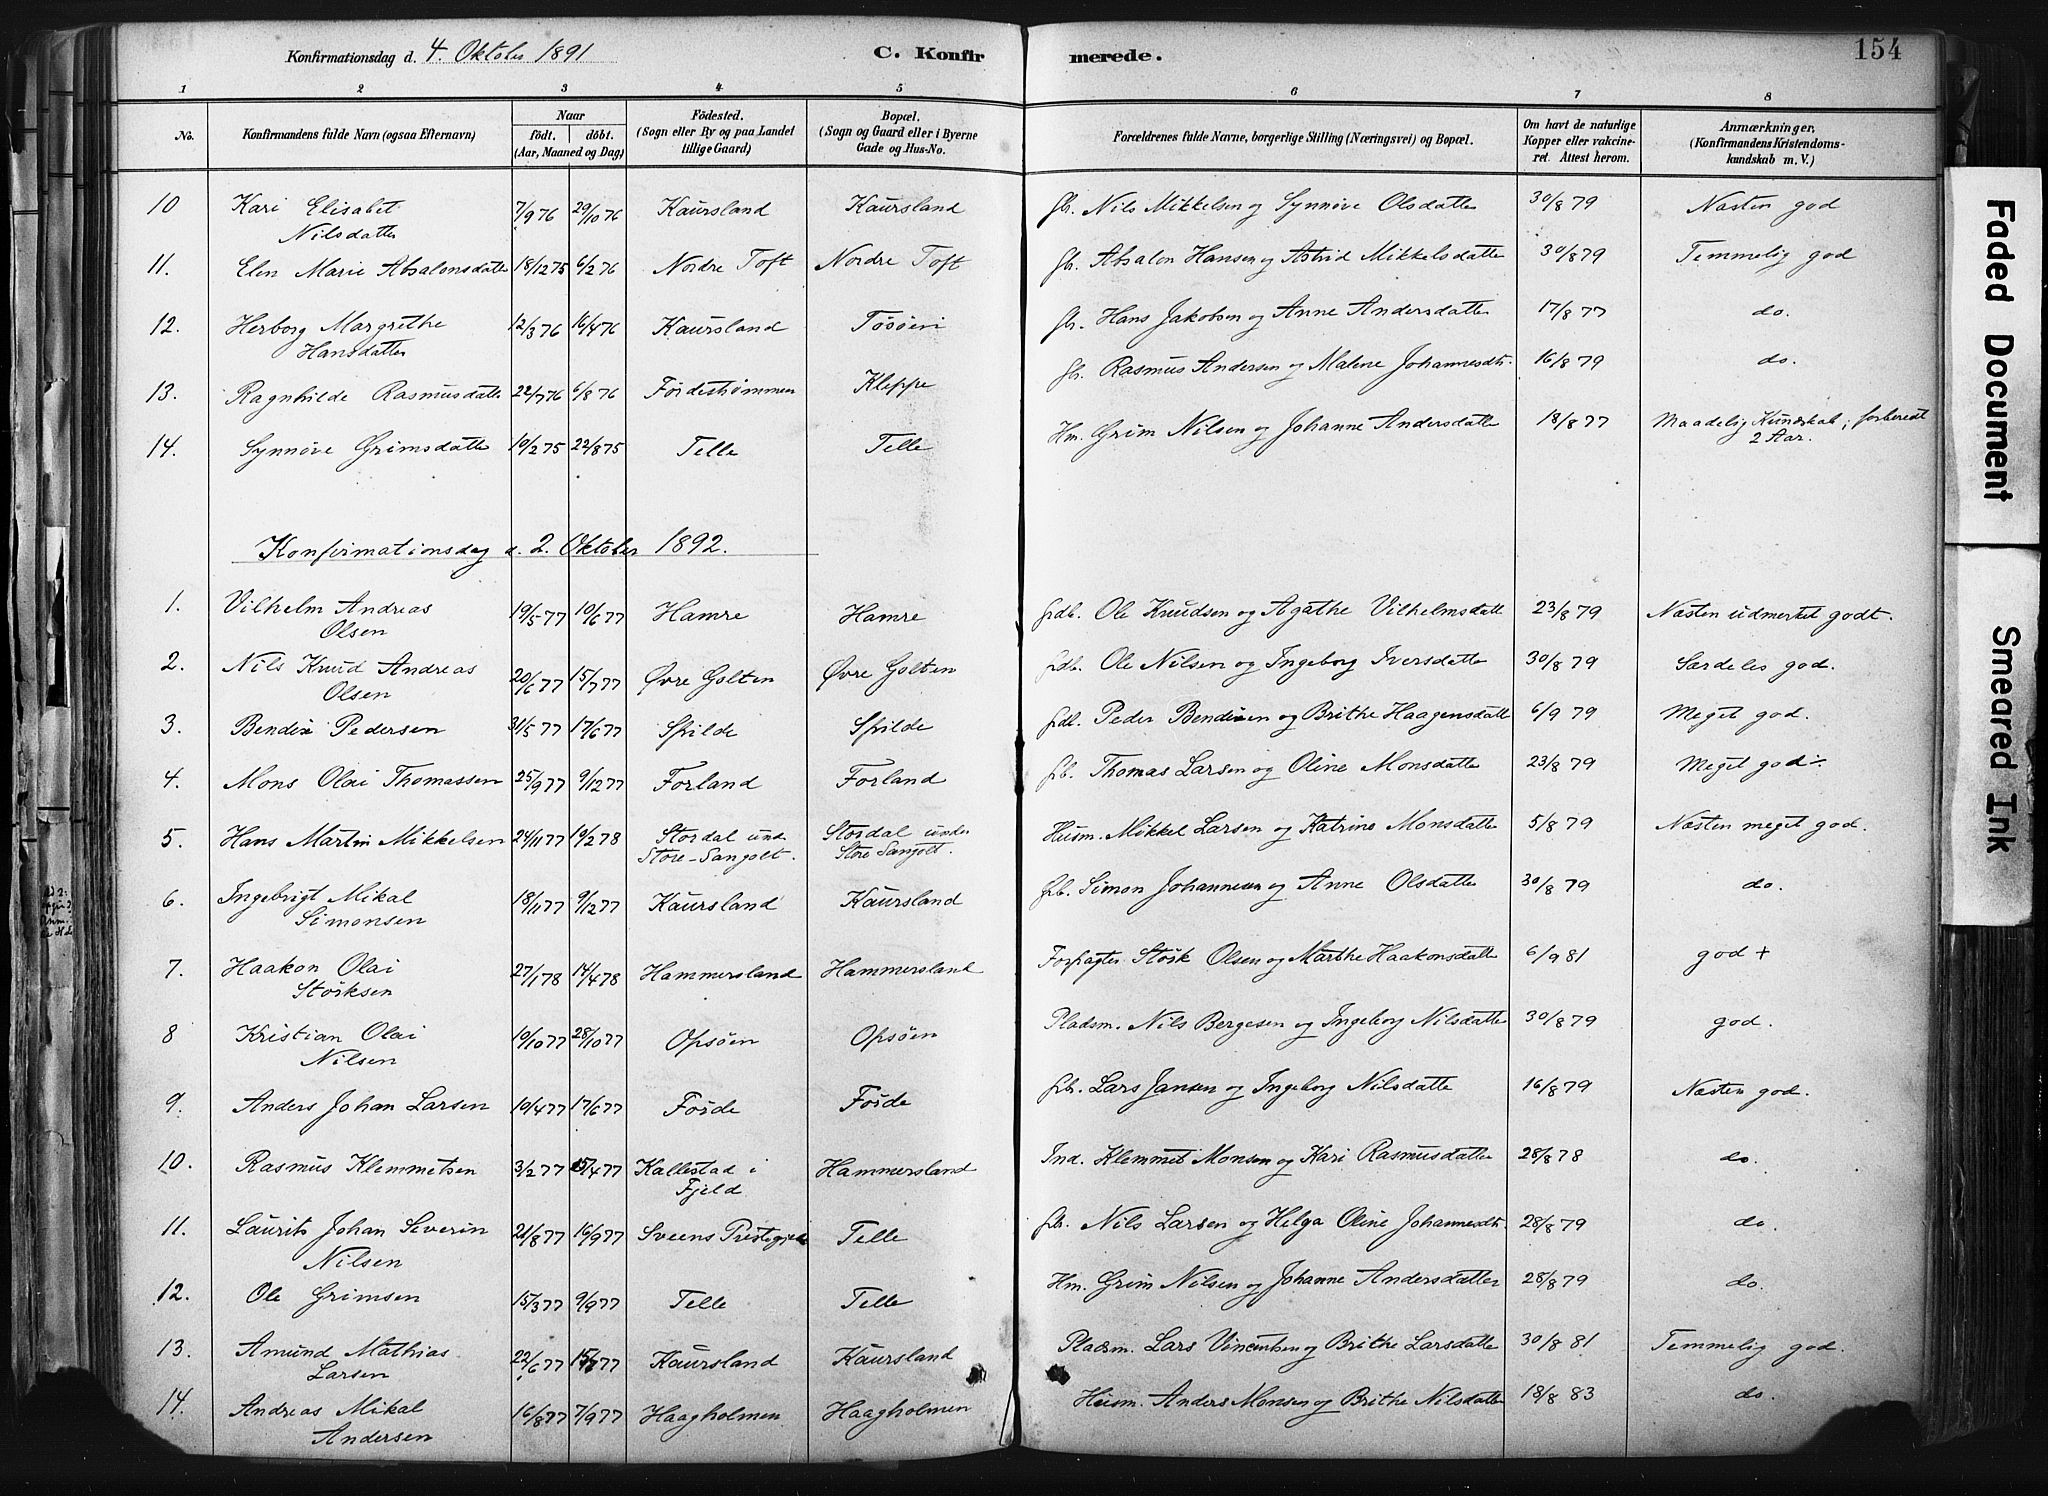 Konfirmationsdag d. 4. Oktober 1891 C. Konfirmerede. 154
1 2 3 4 5 6 7 8
No. Konfirmandens fulde Navn (ogsaa Efternavn) Naar födt. döbt. (Aar, Maaned og Dag) Födested. (Sogn eller By og paa Landet tillige Gaard) Bopæl. (Sogn og Gaard eller i Byerne Gade og Hus-No. Forældrenes fulde Navne, borgerlige Stilling (Næringsvei) og Bopæl. Om havt de naturlige Kopper eller vakcineret. Attest herom. Anmærkninger. (Konfirmandens Kristendomskundskab m. V.)
10 Kari Elisabet Nilsdatter 7/9 76 29/10 76 Kaursland Kaursland gb. Nils Mikkelsen og Synnøve Olsdatter 30/8 79 Næsten god
11. Elen Marie Absalonsdatter 18/12 75 6/2 76 Nordre Toft Nordre Toft gb. Absalon Hansen og Astrid Mikkelsdatter 30/8 79 Temmelig god
12. Herborg Margrethe Hansdatter 12/3 76 16/4 76 Kaursland Tøsøen gb. Hans Jakobsen og Anne Andersdatter 17/8 77 do.
13. Ragnhilde Rasmusdatter 22/7 76 6/8 76 Førdestrømmen Kleppe gb. Rasmus Andersen og Malene Johannesdtr. 16/8 79 do.
14. Synnøve Grimsdatter 10/2 75 22/8 75 Telle Telle Hm. Grim Nilsen og Johanne Andersdatter 18/8 77 Maadelig Kundskab; forberedt 2 Aar.
Konfirmationsdag d. 2. Oktober 1892.
1. Vilhelm Andreas Olsen 19/5 77 10/6 77 Hamre Hamre gdb. Ole Knudsen og Agathe Vilhelmsdatt 23/8 79 Næsten udmerket godt.
2. Nils Knud Andreas Olsen 20/6 77 15/7 77 Øvre Golten Øvre Golten gdb. Ole Nilsen og Ingeborg Iversdatter 30/8 79 Særdeles god.
3. Bendix Pedersen 31/5 77 17/6 77 Spilde Spilde gdb. Peder Bendixen og Brithe Haagensdatter 6/9 79 Meget god.
4. Mons Olai Thomassen 25/9 77 9/12 77 Forland Forland gb. Thomas Larsen og Oline Monsdatter 23/8 79 Meget god ÷
5. Hans Martin Mikkelsen 24/11 77 10/2 78 Stordal und Store-Sangolt. Stordal under Store Sangolt. Husm. Mikkel Larsen og Katrine Monsdatter 5/8 79 Næsten meget god.
6. Ingebrigt Mikal Simonsen 18/11 77 9/12 77 Kaursland Kaursland gb. Simon Johannesen og Anne Olsdatter 30/8 79 do.
7. Haakon Olai Størksen 27/1 78 14/4 78 Hammersland Hammersland Forpagter Størk Olsen og Marthe Haakonsdatter 6/9 81 god +
8 Kristian Olai Nilsen 10/10 77 28/10 77 Opsøen Opsøen Pladsm. Nils Bergesen og Ingeborg Nilsdatter 30/8 79 god.
9. Anders Johan Larsen 10/4 77 17/6 77 Førde Førde gb. Lars Jansen og Ingeborg Nilsdatte 16/8 79 Næsten god.
10. Rasmus Klemmetsen 3/2 77 15/4 77 Kallestad i Fjeld Hammersland Ind. Klemmet Monsen og Kari Rasmusdatter 28/8 78 do.
11. Laurits Johan Severin Nilsen 21/8 77 16/9 77 Sveens Præstegjæld Telle gb. Nils Larsen og Helga Oline Johannesdtr. 28/8 79 do
12. Ole Grimsen 15/3 77 9/9 77 Telle Telle Hm. Grim Nilsen og Johanne Andersdatter 28/8 79 do.
13. Amund Mathias Larsen 22/6 77 15/7 77 Kaursland Kaursland Pladsm. Lars Vincentsen og Brithe Larsdatte 30/8 81 Temmelig god.
14. Andreas Mikal Andersen 16/8 77 7/9 77 Haagholmen Haagholmen Husm. Anders Monsen og Brithe Nilsdatter 18/8 83 do.
Faded Document
Smeared Ink